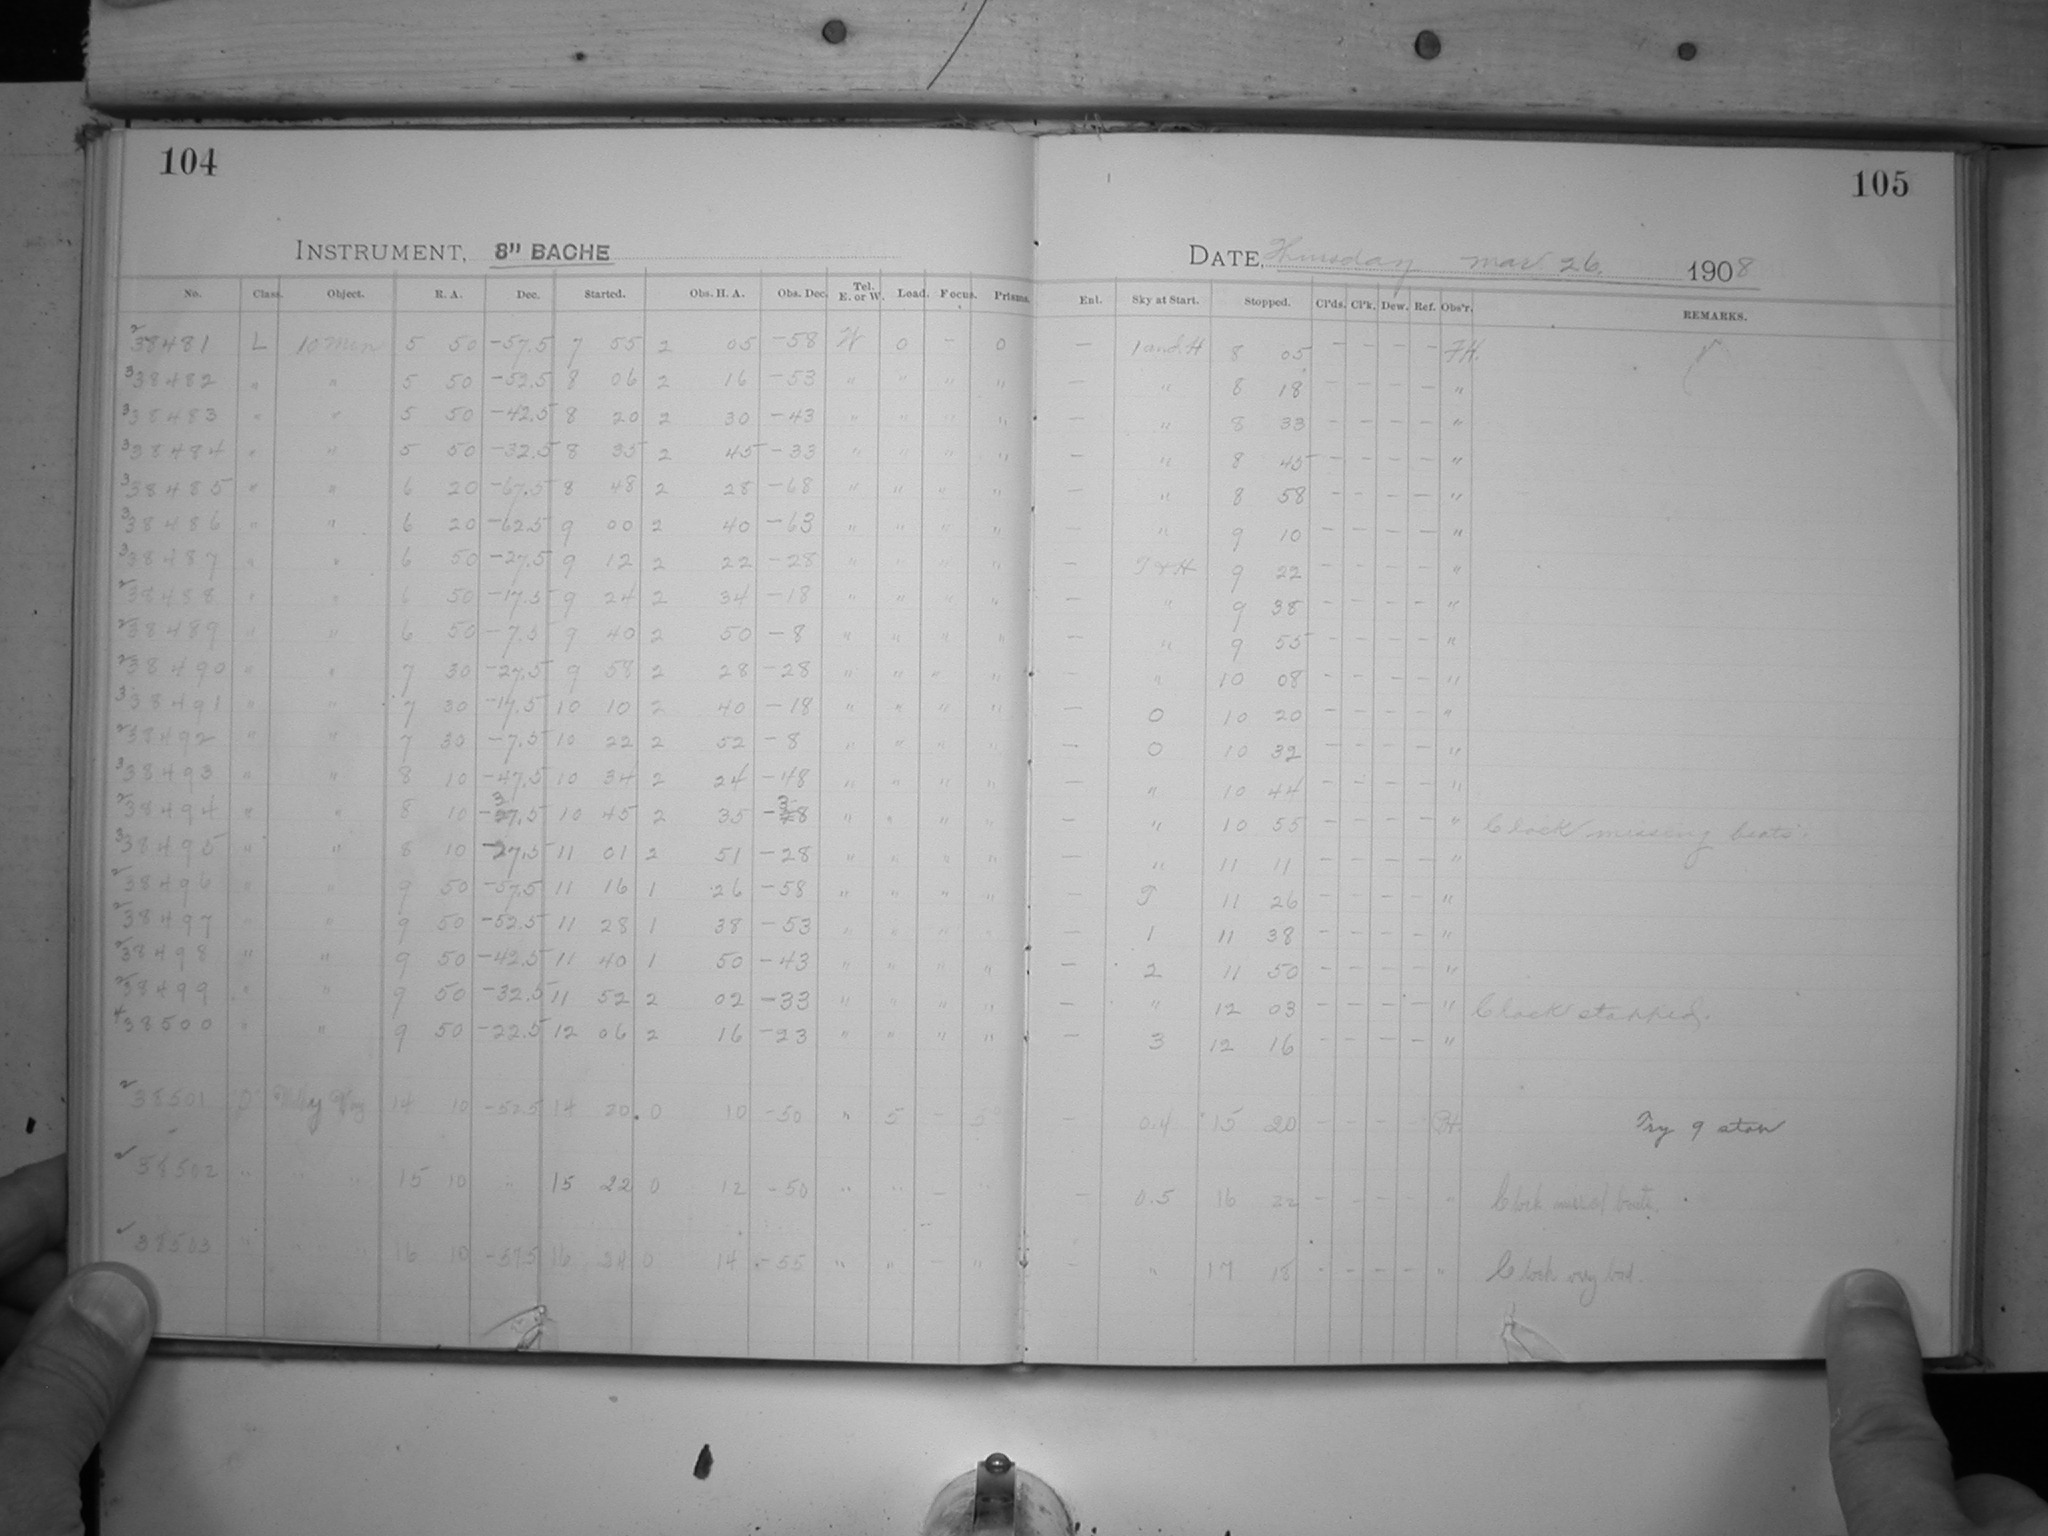 104
105
INSTRUMENT, 8" BACHE
DATE, Thursday Mar 26, 1908
No. Class. Object. R. A. Dec. Started. Obs. H. A. Obs. Dec. Tel. E. or W. Load. Focus. Prisms. Enl. Sky at Start. Stopped. Cl'ds. Cl'k. Dew. Ref. Obs'r. REMARKS.
2 38481 L 10 Min 5 50 -57.5 7 55 2 05 -58 W 0 - 0 - 1 and H 8 05 - - - - FH.
3 38482 " " 5 50 -52.5 8 06 2 16 -53 " " " " - " 8 18 - - - - "
3 38483 " " 5 50 -42.5 8 20 2 30 -43 " " " " - " 8 33 - - - - "
3 38484 " " 5 50 -32.5 8 35 2 45 -33 " " " " - " 8 45 - - - - "
3 38485 " " 6 20 -67.5 8 48 2 28 -68 " " " " - " 8 58 - - - - "
3 38486 " " 6 20 -62.5 9 00 2 40 -63 " " " " - " 9 10 - - - - "
3 38487 " " 6 50 -27.5 9 12 2 22 -28 " " " " - H 9 22 - - - - "
2 38488 " " 6 50 -17.5 9 24 2 34 -18 " " " " - " 9 38 - - - - "
2 38489 " " 6 50 -7.5 9 40 2 50 -8 " " " " - " 9 55 - - - - "
2 38490 " " 7 30 -27.5 9 58 2 28 -28 " " " " - " 10 08 - - - - "
3 38491 " " 7 30 -17.5 10 10 2 40 -18 " " " " - 0 10 20 - - - - "
2 38492 " " 7 30 -7.5 10 22 2 52 -8 " " " " - 0 10 32 - - - - "
3 38493 " " 8 10 -47.5 10 34 2 24 -48 " " " " - " 10 44 - - - - "
2 38494 " " 8 10 -37.5 10 45 2 35 -38 " " " " - " 10 55 - - - - " Clock missing beats.
3 38495 " " 8 10 -27.5 11 01 2 51 -28 " " " " - " 11 11 - - - - "
2 38496 " " 9 50 -57.5 11 16 1 26 -58 " " " " - 11 26 - - - - "
2 38497 " " 9 50 -52.5 11 28 1 38 -53 " " " " - 1 11 38 - - - - "
2 38498 " " 9 50 -42.5 11 40 1 50 -43 " " " " - 2 11 50 - - - - "
2 38499 " " 9 50 -32.5 11 52 2 02 -33 " " " " - " 12 03 - - - - " Clock stopped.
4 38500 " " 9 50 -22.5 12 06 2 16 -23 " " " " - 3 12 16 - - - - "
2 38501 14 10 -52.5 14 20 0 10 -50 " 5 - 5 - 0.4 15 20 - - - - Try 9 stow
38502 " " 15 10 " 15 22 0 12 -50 " " - " - 0.5 16 22 - - - - " Clock missed beats.
38503 " " 16 10 -57.5 16 24 0 14 -55 " " - " - " 17 18 - - - - " Clock very bad.